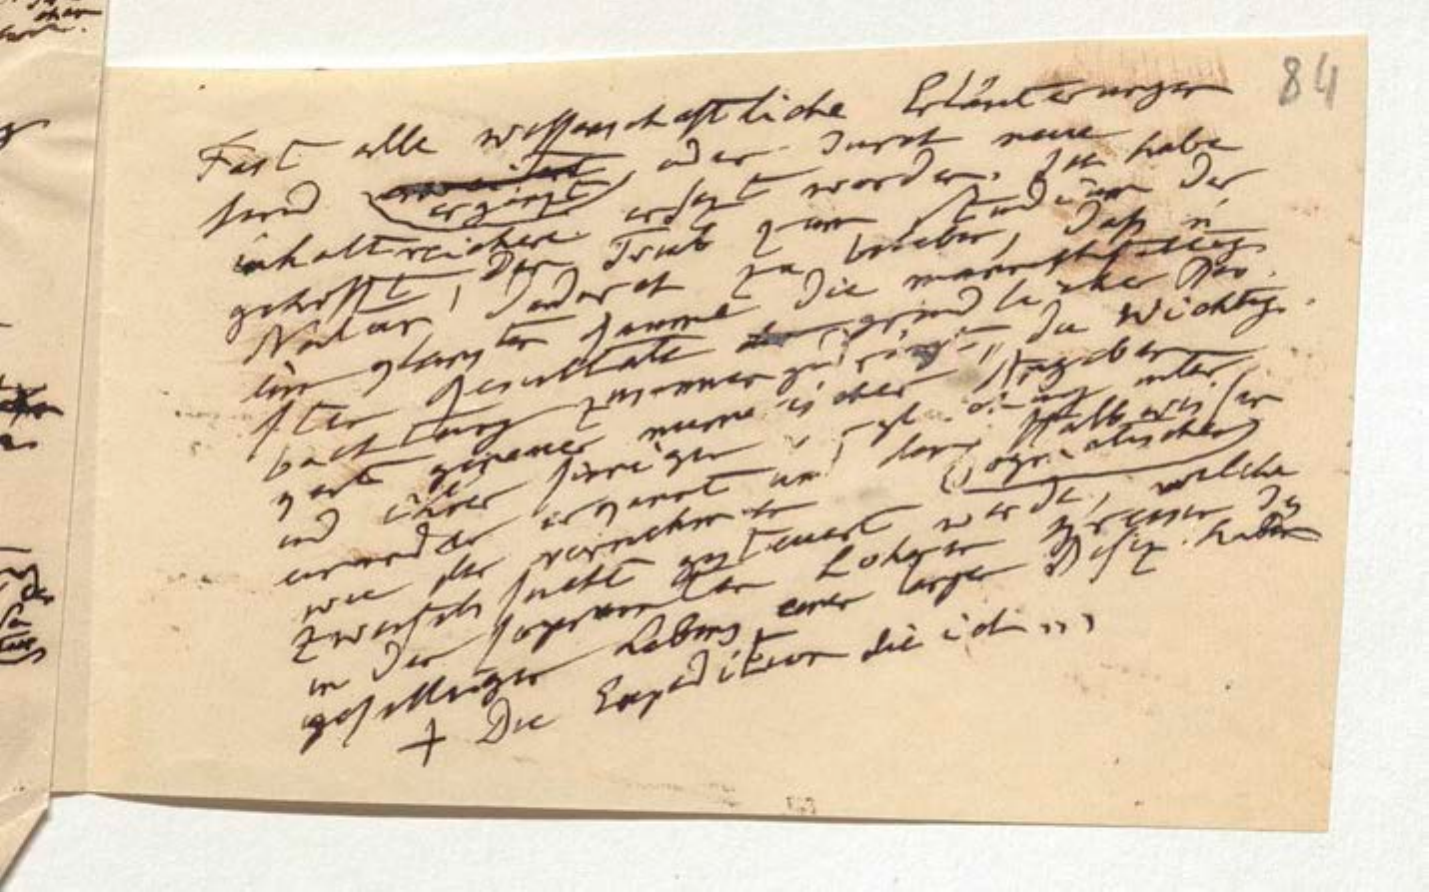 84
Fast alle wissenschaftliche Erläuterungen
sind ergänzt oder durch neue
inhaltreichere ersetzt worden. Ich habe
gehofft, den Trieb zum Studium der
Natur dadurch zu beleben, daß in
Raume die mannigfaltig
sten Resultate gründlicher Beo
bachtung zusammengedrängt, die Wichtig
keit genauer numerischer Angaben
und ihrer sinnigen Vergleichung unter
einander erkannt und dem Halbwissen
dogmatischen
wie der vornehmen
Zweifelsucht gesteuert werde, welche
in den sogenannten höheren Kreisen des
geselligen Lebens einen langen Besitz haben
+ Die Expedition die ich ...